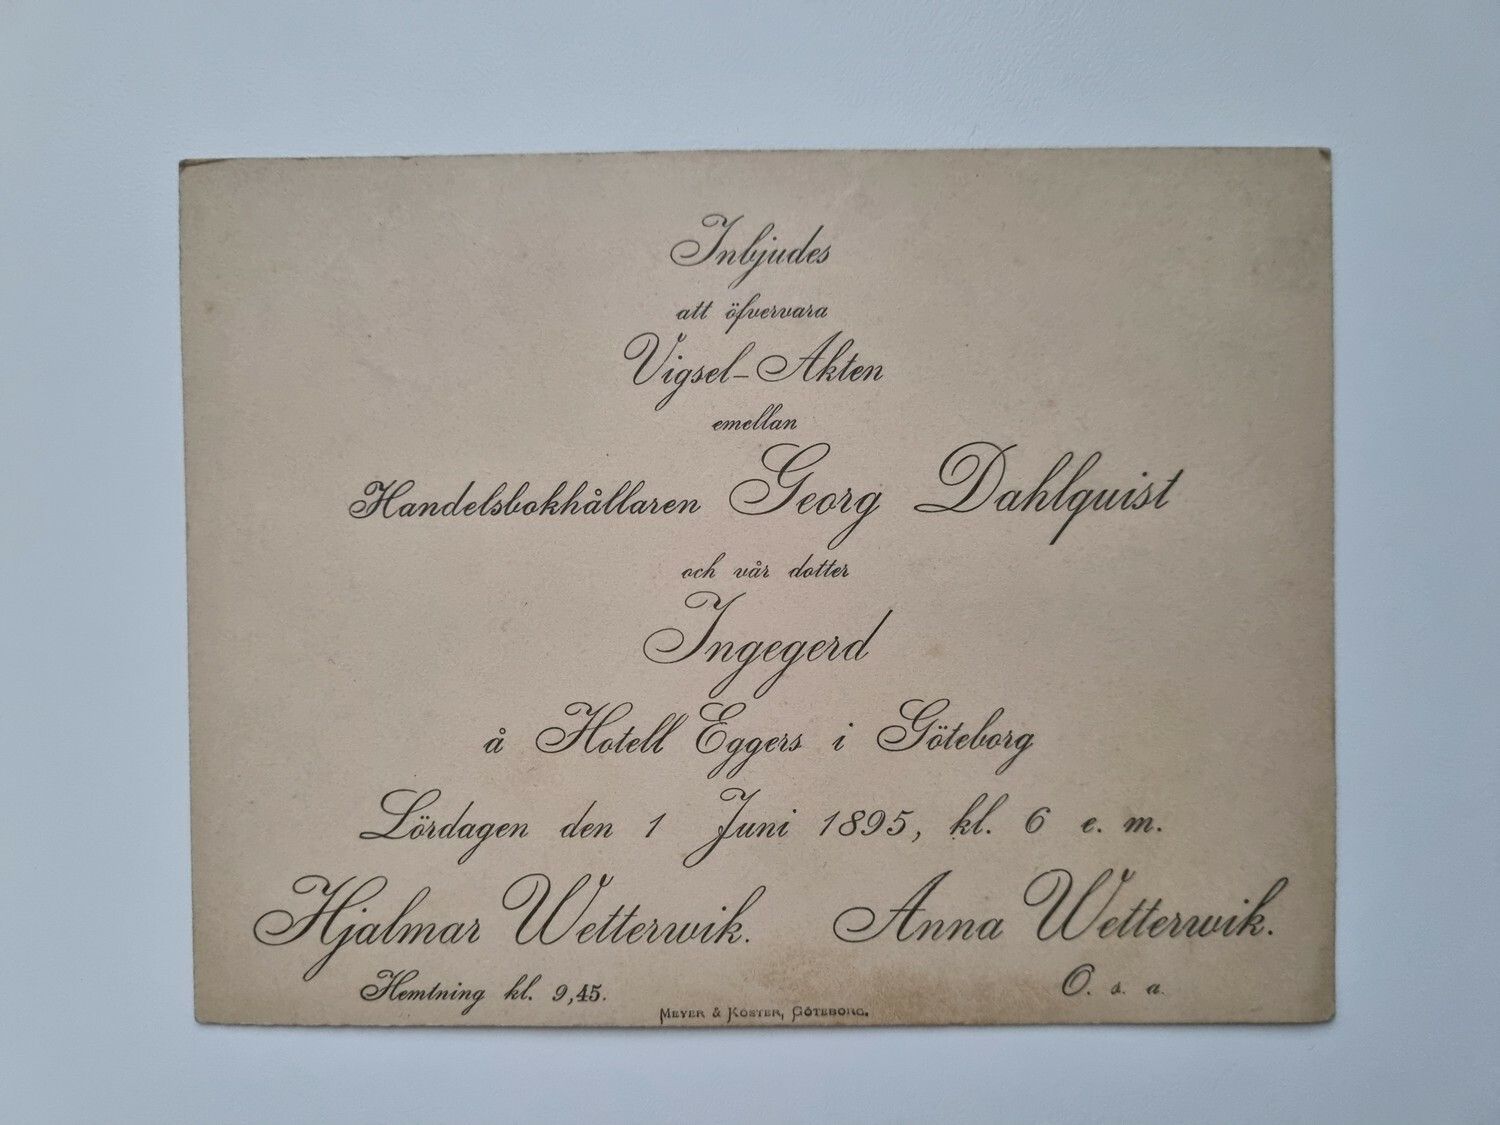 Inbjudes
att öfvervara
Vigsel-Akten
emellan
Handelsbokhållaren Georg Dahlquist
och vår dotter
Ingegerd
å Hotell Eggers i Göteborg
Lördagen den 1 Juni 1895, kl. 6 e. m.
Hjalmar Wetterwik. Anna Wetterwik.
Hemtning kl. 9,45. O. s. a.
MEYER & KÖSTER, GÖTEBORG.